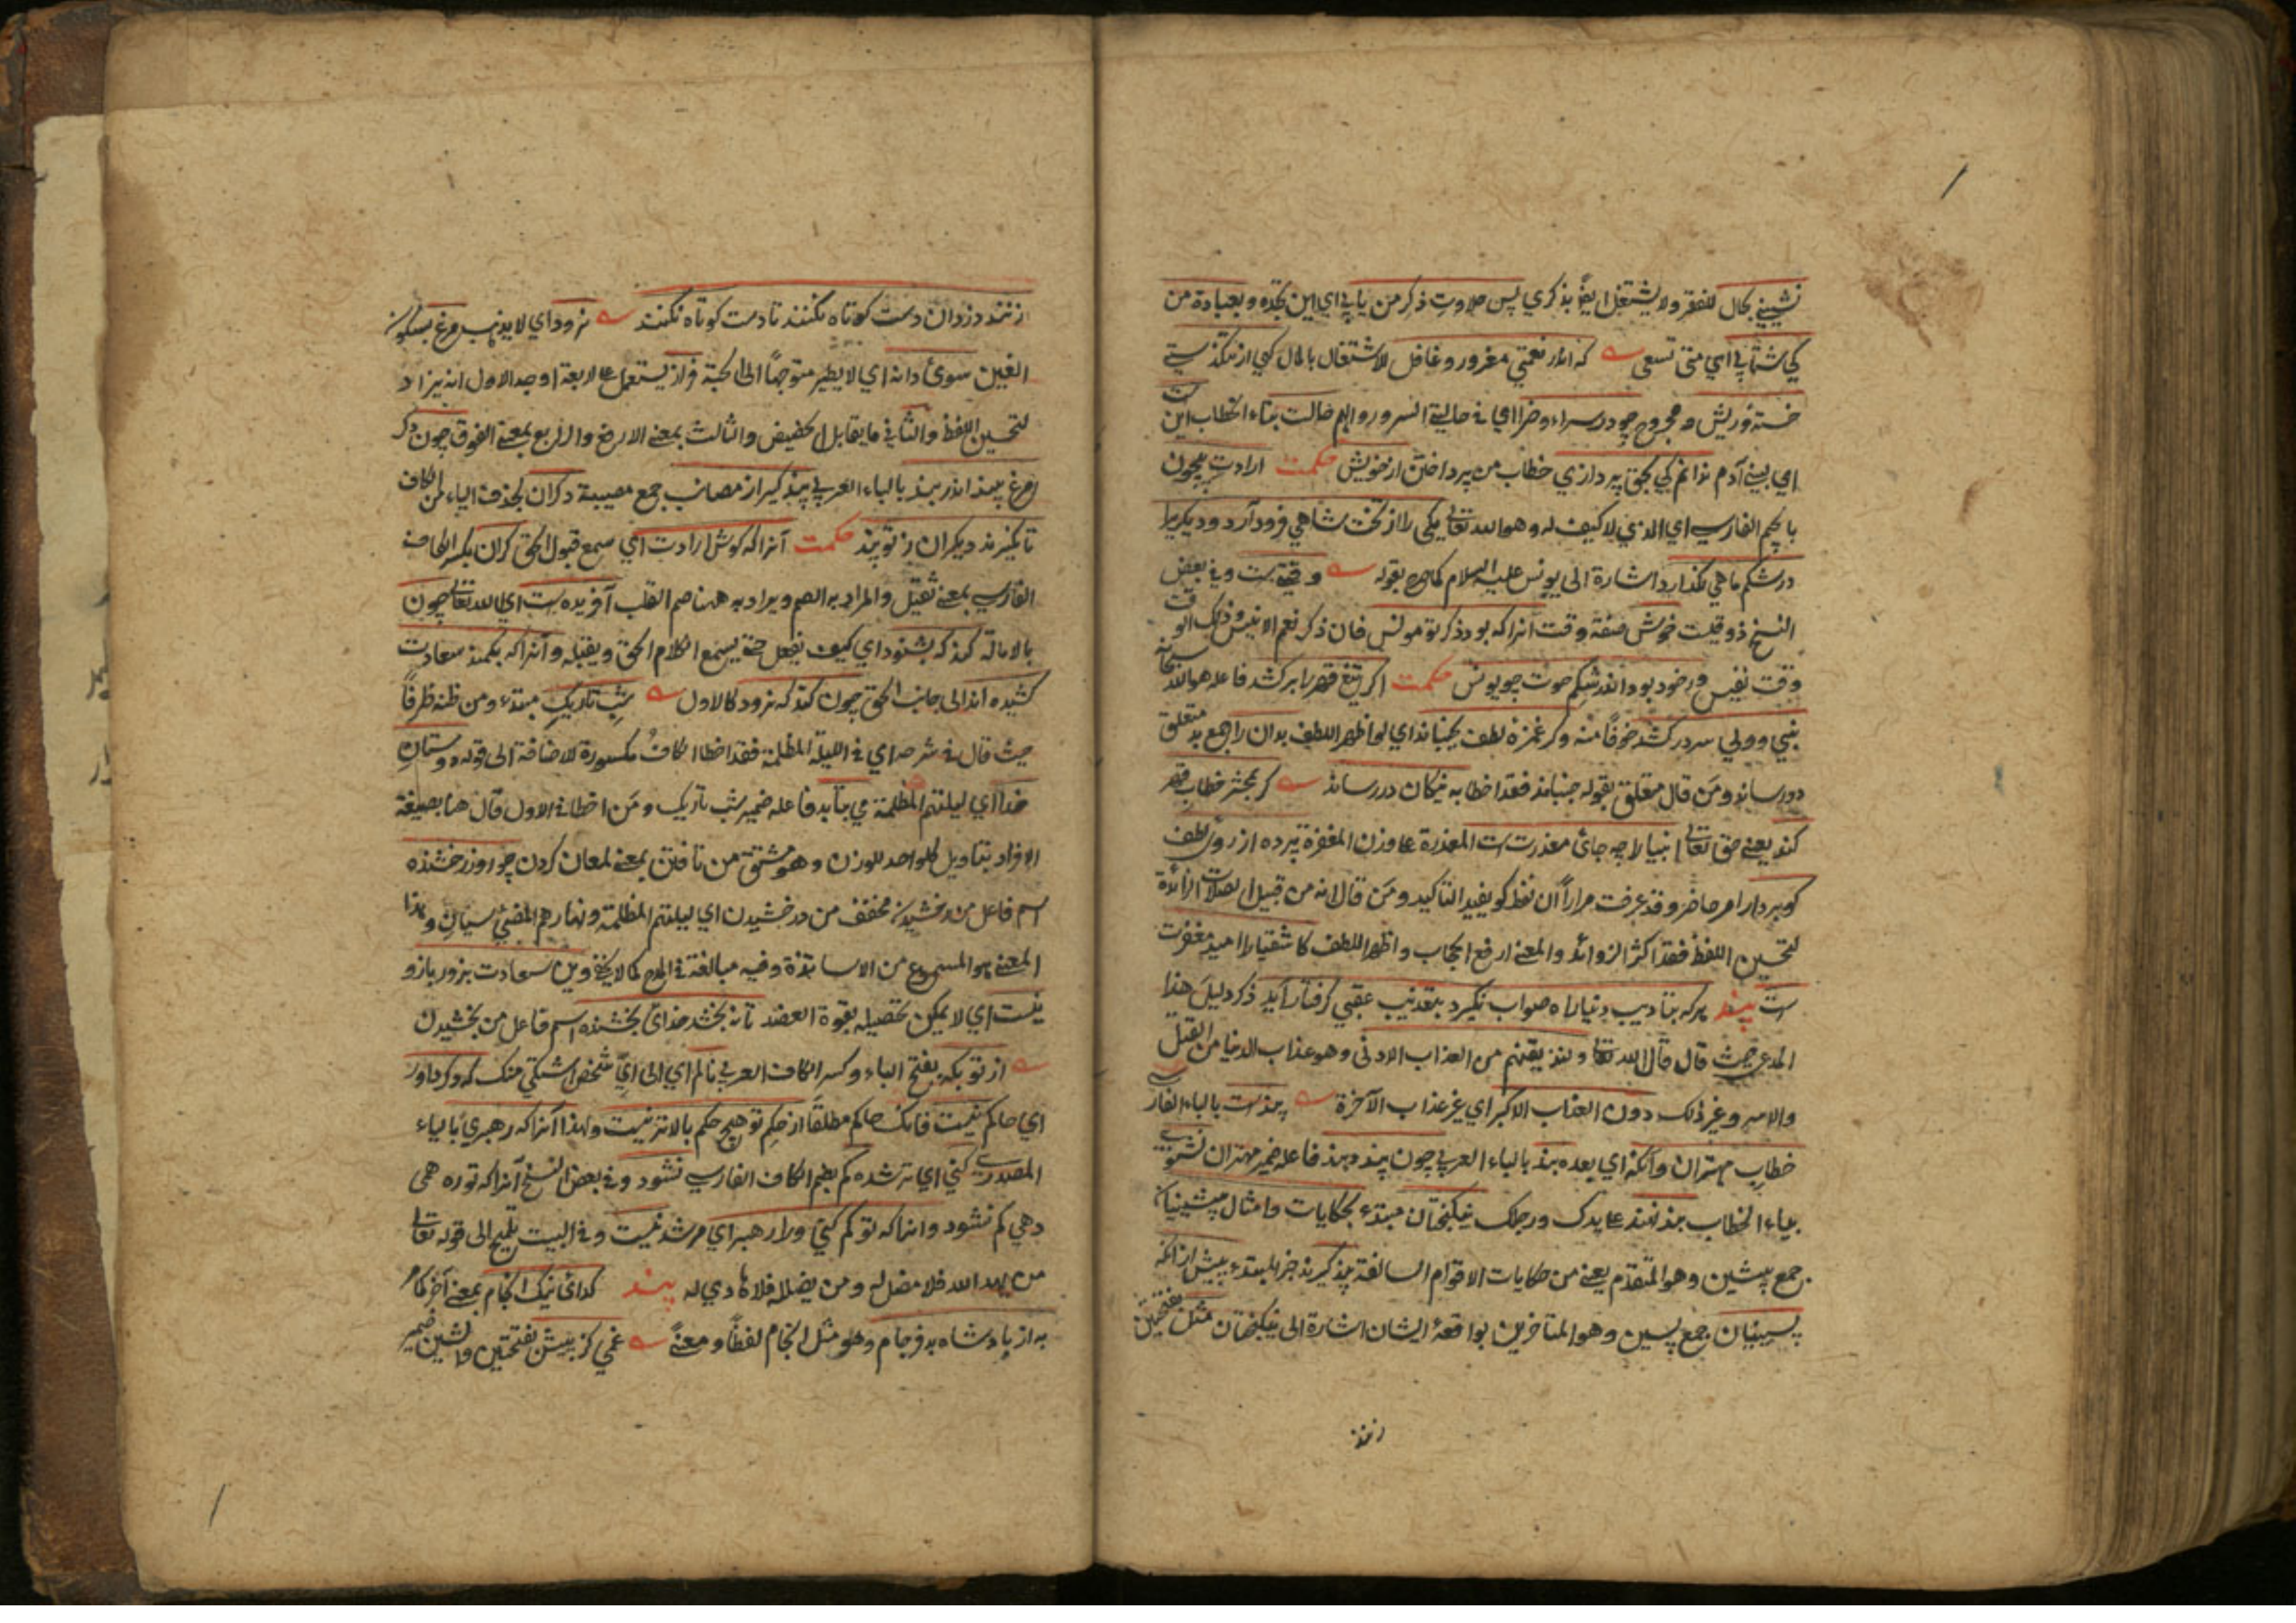 نشيني بحال للفقر ولا يشتغل ايضًا بذكري پس حلاوت ذكر من يابي اي اين تجده وبعبادة من
كي شتابي اي متى تسعى كه اندر نعمتي مغرور وغافل للاشتغال بالمال كهي از تنكدستي
خسته وريش ومجروح چو در سراء وضرا اي في حالتي السرور والهم حالت بتاء الخطاب اين ست
اي بيني آدم ندانم كي بحق پردازي خطاب من پرداختن از خويش حكمت ارادت بيچون
بالجيم الفارسي اي الذي لا كيف له وهو الله تعالى يكي را از تخت شاهي فرود آرد وديكريرا
در شكم ماهي نكذارد اشارة الى يونس عليه السلام كما صرح بقوله وقتيست وفي بعض
النسخ ذوقيست خوش صفة وقت انرا كه بود ذكر تو مونس فان ذكر نعم الانيس وذلك الوقت
وقت نفيس ورخود بود اندر شكم حوت چو يونس حكمت اكر تيغ قهر بر كشد فاعله هو الله سبحانه
نبي وولي سر در كشد خوفًا منه وكر غمزه لطف بجنباند اي لو اظهر اللطف بدان را جمع بد متعلق
دررساند ومن قال متعلق بقوله جنباند فقد اخطا به نيكان دررساند كر بمحشر خطاب قهر
كند يعني حق تعالى انبيا را چه جاى معذرت ست المعذرة على وزن المغفرة پرده از روى لطف
كو بردار امر حاضر وقد عرفت مرارًا ان لفظ كو يفيد التاكيد ومن قال انه من قبيل الصلات الزائدة
لتحسين اللفظ فقد اكثر الزوائد والمعنى ارفع الحجاب واظهر اللطف كاشقيارا اميد مغفرت
است پند هركه بتاديب دنيا راه صواب نكيرد بتعذيب عقبي كرفتار آيد ذكر دليل هذا
المدعى حيث قال قال الله تعالى ولنذيقنهم من العذاب الادنى وهو عذاب الدنيا من القتل
والاسر وغير ذلك دون العذاب الاكبر اي غير عذاب الآخرة پندست بالباء الفارسي
خطاب مهتران وآنكه اي بعده بند بالباء العربي چون پند دهند فاعله ضمير مهتران نشنوي
بياء الخطاب بند نهند على يدك ورجلك نيكبختان مبتدء بحكايات وامثال پيشينيان
جمع پيشين وهو المتقدم يعني من حكايات الاقوام السالفة پند كيرند خبر المبتدء پيش ازانكه
پسينيان جمع پسين وهو المتاخرين بواقعهٔ ايشان اشارة الى نيكبختان مثل بفتحتين
زنند
زنند دزدان دست كوتاه نكنند تا دست كوتاه نكنند نرود اي لا يذهب مرغ بسكون
الغين سوى دانه اي لا يطير متوجهًا الى الحبة فراز يستعمل على اربعة اوجه الاول انه يزاد
لتحسين اللفظ والثاني ما يقابل الحضيض والثالث بمعنى الارض والرابع بمعنى الفوق چون دكر
مرغ بيند اندر بند بالباء العربي پند كير از مصائب جمع مصيبة دكران بحذف الياء من الكاف
تا نكيرند ديكران ز تو پند حكمت آنرا كه كوش ارادت اي سمع قبول الحق كران بكسر الكاف
الفارسي بمعنى ثقيل والمراد به الصم ويراد به هنا صم القلب آفريده ست اي الله تعالى چون
بالامالة كند كه بشنود اي كيف يفعل حتى يسمع الكلام الحق ويقبله وآنرا كه بكمند سعادت
كشيده اند الى جانب الحق چون كند كه نرود كالاول شب تاريك مبتدء ومن ظنه ظرفًا
حيث قال في شرحه اي في الليلة المظلمة فقد اخطا الكاف مكسورة للاضافة الى قوله دوستان
خدا اي ليلتهم المظلمة مي بتابد فاعله ضمير شب تاريك ومن اخطا في الاول قال هنا بصيغة
الافراد بتاويل كل واحد للوزن وهو مشتق من تافتن بمعنى لمعان كردن چو روز رخشنده
اسم فاعل من رخشيدن مخفف من درخشيدن اي ليلتهم المظلمة ونهارهم المضيئ سيان وهذا
المعنى هو المسموع من الاساتذة وفيه مبالغة في المدح كما لا يخفى وين سعادت بزور بازو
نيست اي لا يمكن تحصيله بقوة العضد تا نه بخشد خداى بخشنده اسم فاعل من بخشيدن
از تو بكه بفتح الباء وكسر الكاف العربي نالم اي الى اي شخص اشتكي منك كه دكر داور
اي حاكم نيست فانك حاكم مطلقًا از حكم تو هيچ حكم بالاتر نيست ولهذا آنرا كه رهبري بالياء
المصدري كني اي نه شده كم بضم الكاف الفارسي نشود وفي بعض النسخ آنرا كه تو ره همي
دهي كم نشود وانرا كه تو كم كني ورا رهبر اي مرشد نيست وفي البيت تلميح الى قوله تعالى
من يهد الله فلا مضل له ومن يضلله فلا هادي له پند كداى نيك انجام بمعنى آخر كار
به از پادشاه بد فرجام وهو مثل انجام لفظًا ومعنىً غمي كز پيش بفتحتين والشين ضمير